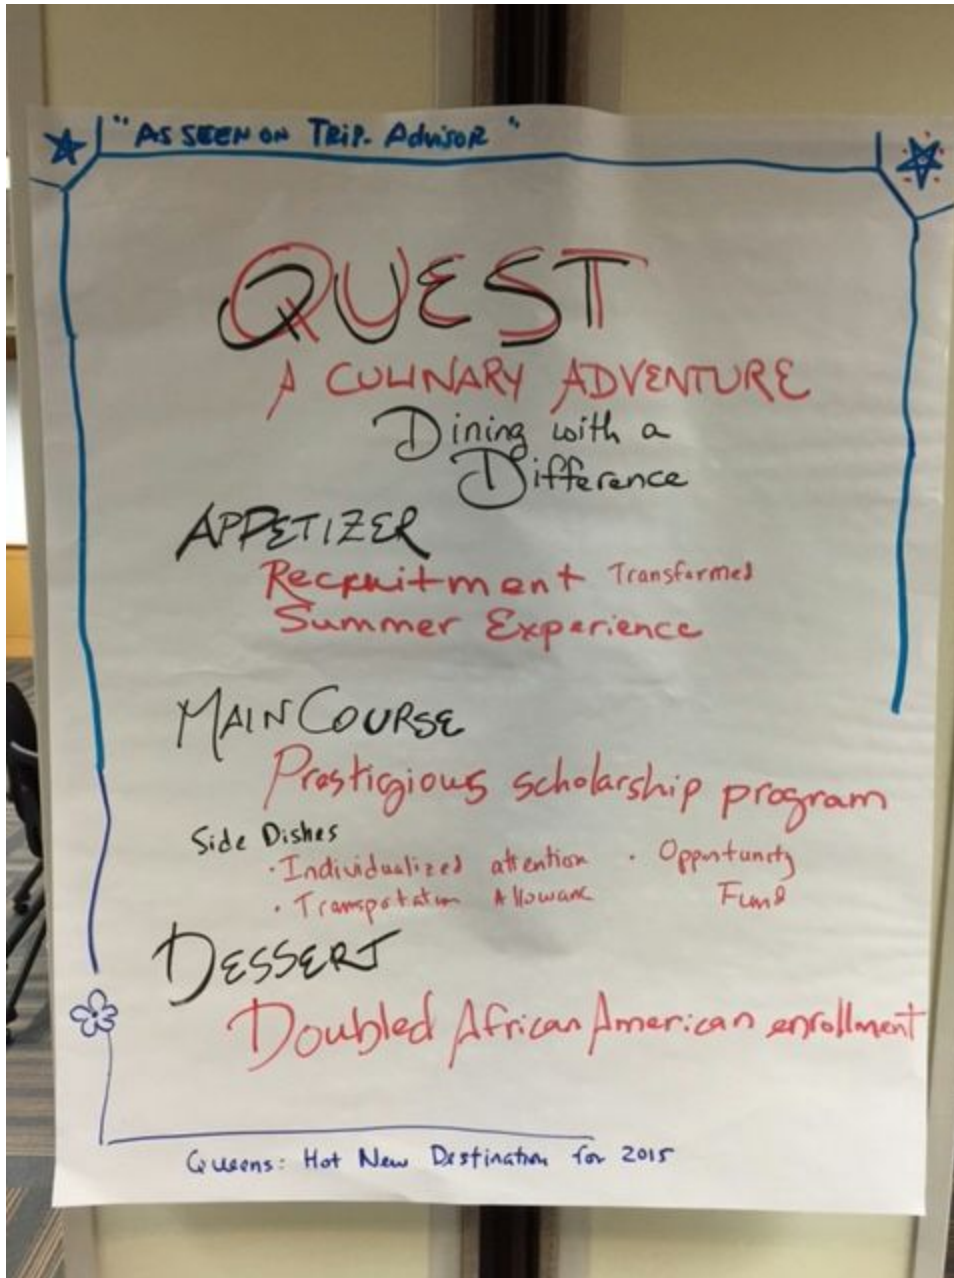 "AS SEEN ON TRIP. Advisor"
QUEST
A CULINARY ADVENTURE
Dining with a
Difference
APPETIZER
Recruitment Transformed
Summer Experience
MAIN COURSE
Prestigious scholarship program
Side Dishes
· Individualized attention · Opportunity
· Transportation Allowance Fund
DESSERT
Doubled African American enrollment
Queens: Hot New Destination for 2015